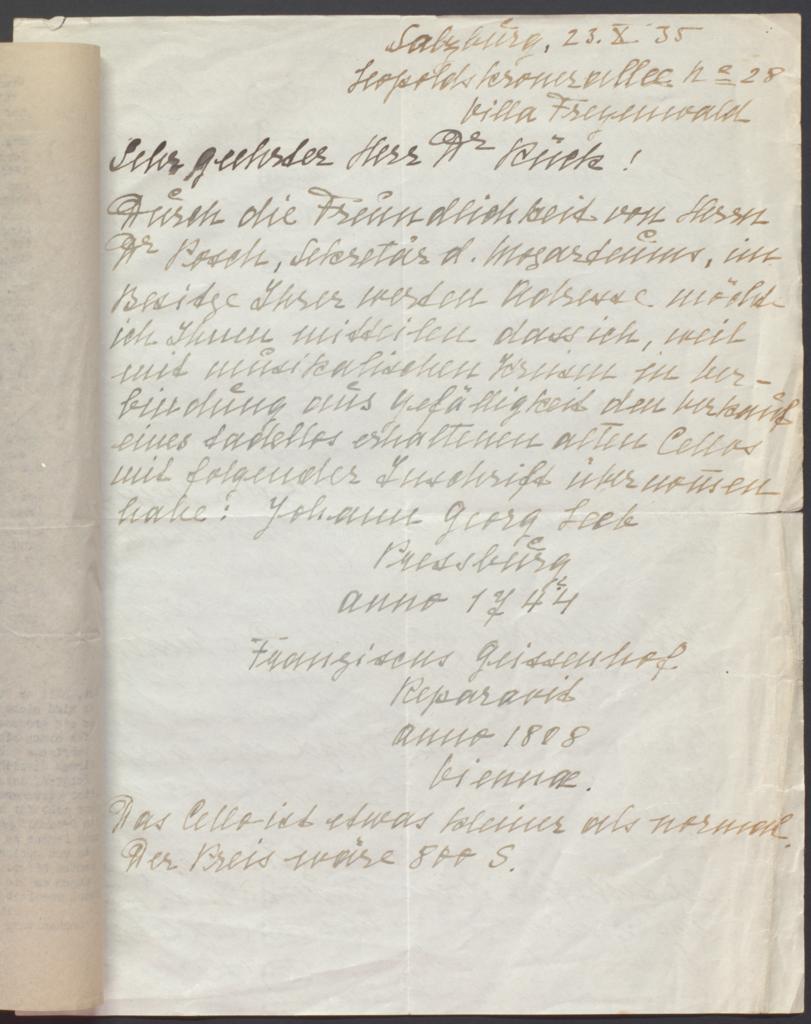 Salzburg, 23. X 35
Leopoldskroneralllee No 28
Villa Freyenwald
Sehr geehrter Herr Dr Rück!
Durch die Freundlichkeit von Herrn
Dr Posch, Sekretär d. Mozarteums, im
Besitze Ihrer werten Adresse möchte
ich Ihnen mitteilen dass ich, weil
mit musikalischen Kreisen in Ver-
bindung aus Gefälligkeit den Verkauf
eines tadellos erhaltenen alten Cellos
mit folgender Inschrift übernom̄en
habe: Johann Georg Leeb
Pressburg
anno 1744
Franziscus Geissenhof
Reparavit
anno 1808
Viennæ.
Das Cello ist etwas kleiner als normal.
Der Preis wäre 800 S.